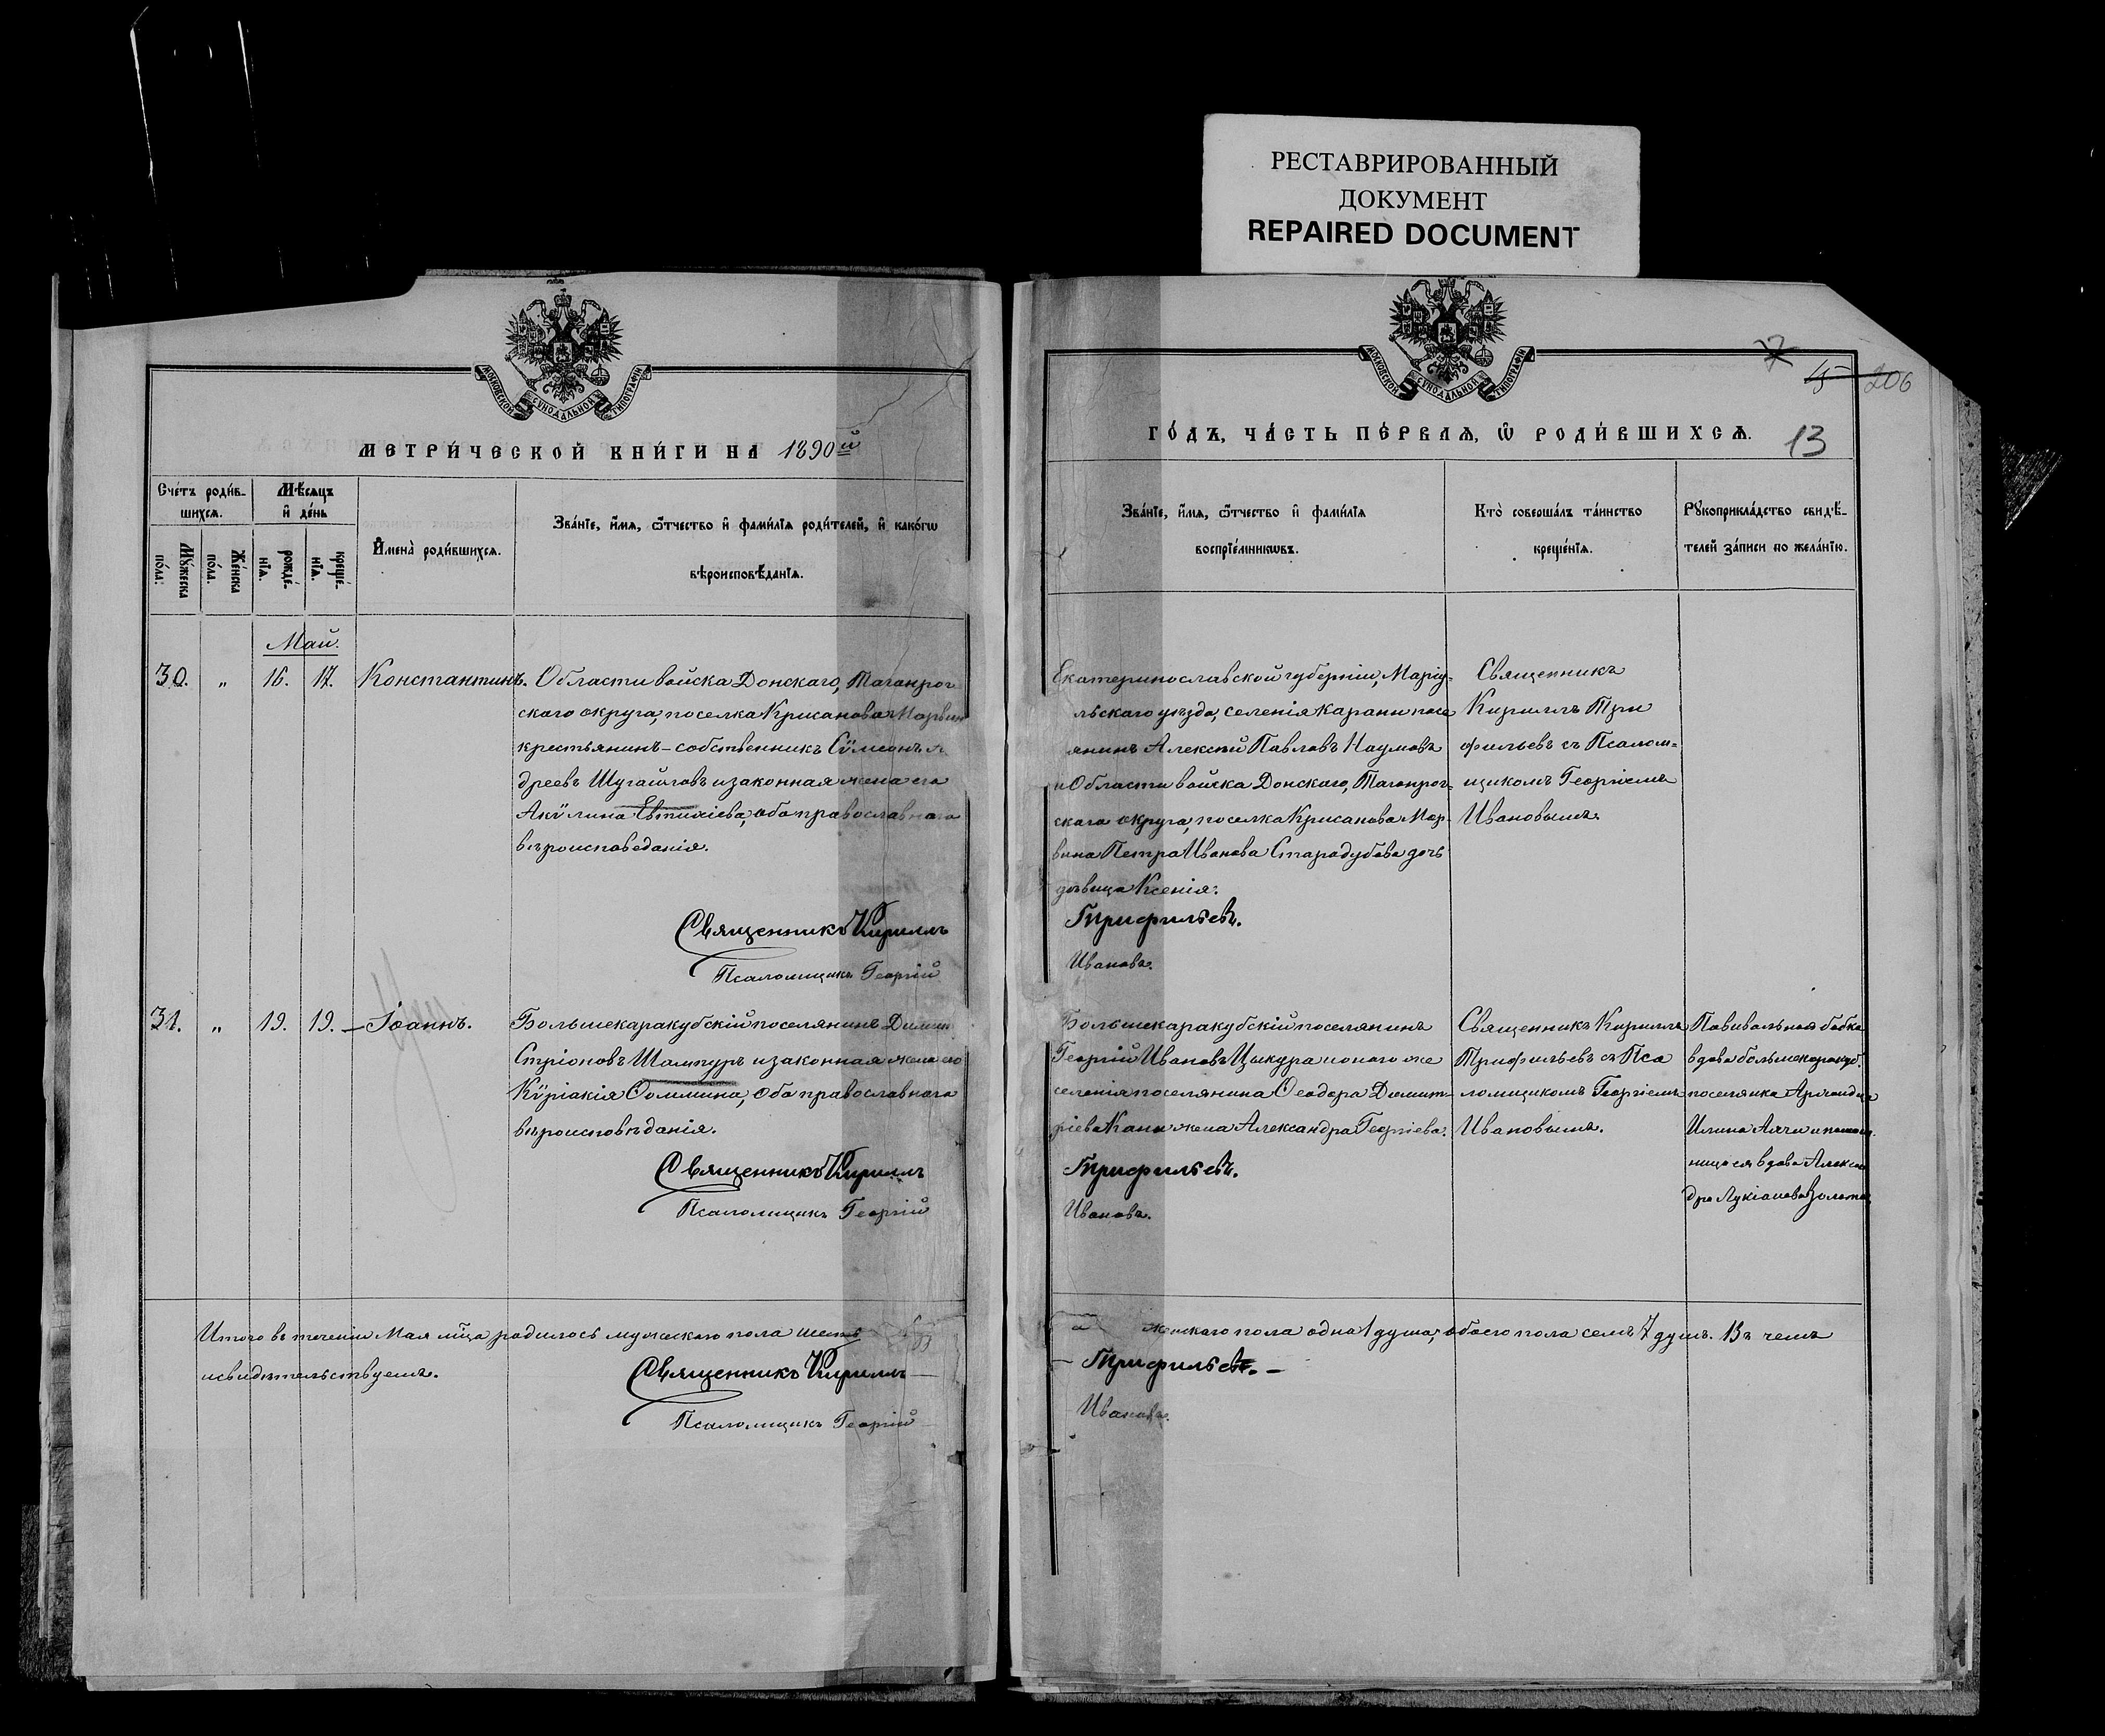 РЕСТАВРИРОВАННЫЙ
ДОКУМЕНТ
REPAIRED DOCUMENT
МОСКОВСКОЙ СѴНОДАЛЬНОЙ ТИПОГРАФІИ
МЕТРИ́ЧЕСКОЙ КНИ́ГИ НА 1890й
Сче́тъ роди́в-
шихсѧ.
Мѣ́сѧцъ
и҆ де́нь
Мꙋ́жеска
по́ла.
Же́нска
по́ла.
рожде́-
нїѧ.
креще́-
нїѧ.
И҆мена̀ роди́вшихсѧ.
Зва́нїе, и҆́мѧ, ѻ҆́тчество и҆ фами́лїѧ роди́телей, и҆ како́гѡ
вѣроисповѣ́данїѧ.
Май.
30. „ 16. 17. Константинъ.
Области войска Донскаго, Таганрог
скаго округа, поселка Крисанова
крестьянинъ-собственникъ Сѵмеонъ
дреевъ и законная жена его
Акѵлина Евтихіева, оба православнаго
вѣроисповеданія.
Священникъ Кириллъ
Псаломщикъ Георгій
31. „ 19. 19. Іоаннъ.
Большекаракубскій поселянинъ
Стріоновъ Шампуръ и законная жена его
Кѵріакія Ѳомина, оба православнаго
вѣроисповѣданія.
Священникъ Кириллъ
Псаломщикъ Георгій
Итого въ теченіи Мая мца родилось мужескаго пола шесть
и свидѣтельствуемъ.
Священникъ Кириллъ
Псаломщикъ Георгій
МОСКОВСКОЙ СѴНОДАЛЬНОЙ ТИПОГРАФІИ
7
15 206
ГО́ДЪ, ЧА́СТЬ ПЕ́РВАѦ, Ѡ҆ РОДИ́ВШИХСѦ.
13
Зва́нїе, и҆́мѧ, ѻ҆́тчество и҆ фами́лїѧ
воспрїе́мникѡвъ.
Кто̀ соверша́лъ та́инство
креще́нїѧ.
Рꙋкоприкла́дство свидѣ́-
телей за́писи по жела́нїю.
Екатеринославской губерніи, Маріу-
льскаго уѣзда, селенія Карани посе
янинъ Алексѣй Павловъ Наумовъ
и Области войска Донскаго, Таганрог-
скаго округа, поселка Крисанова Мар-
вина Петра Иванова Стародубова дочь
дѣвица Ксенія.
Трифильевъ.
Ивановъ.
Священникъ
Кириллъ Три
фильевъ съ Псалом-
щикомъ Георгіемъ
Ивановымъ.
Большекаракубскій поселянинъ
Георгій Ивановъ Цыкура и оного же
селенія поселянина Ѳеодора Димит-
ріева жена Александра Георгіева.
Трифильевъ.
Ивановъ.
Священникъ Кириллъ
Трифильевъ съ Пса
ломщикомъ Георгіемъ
Ивановымъ.
Повивальная бабка
вдова большекаракуб.
поселянка
Илина
ница ея вдова Алексан
дра Лукіанова
женскаго пола одна 1 душа, обоего пола семь 7 душъ. Въ чемъ
Трифильевъ.
Ивановъ.